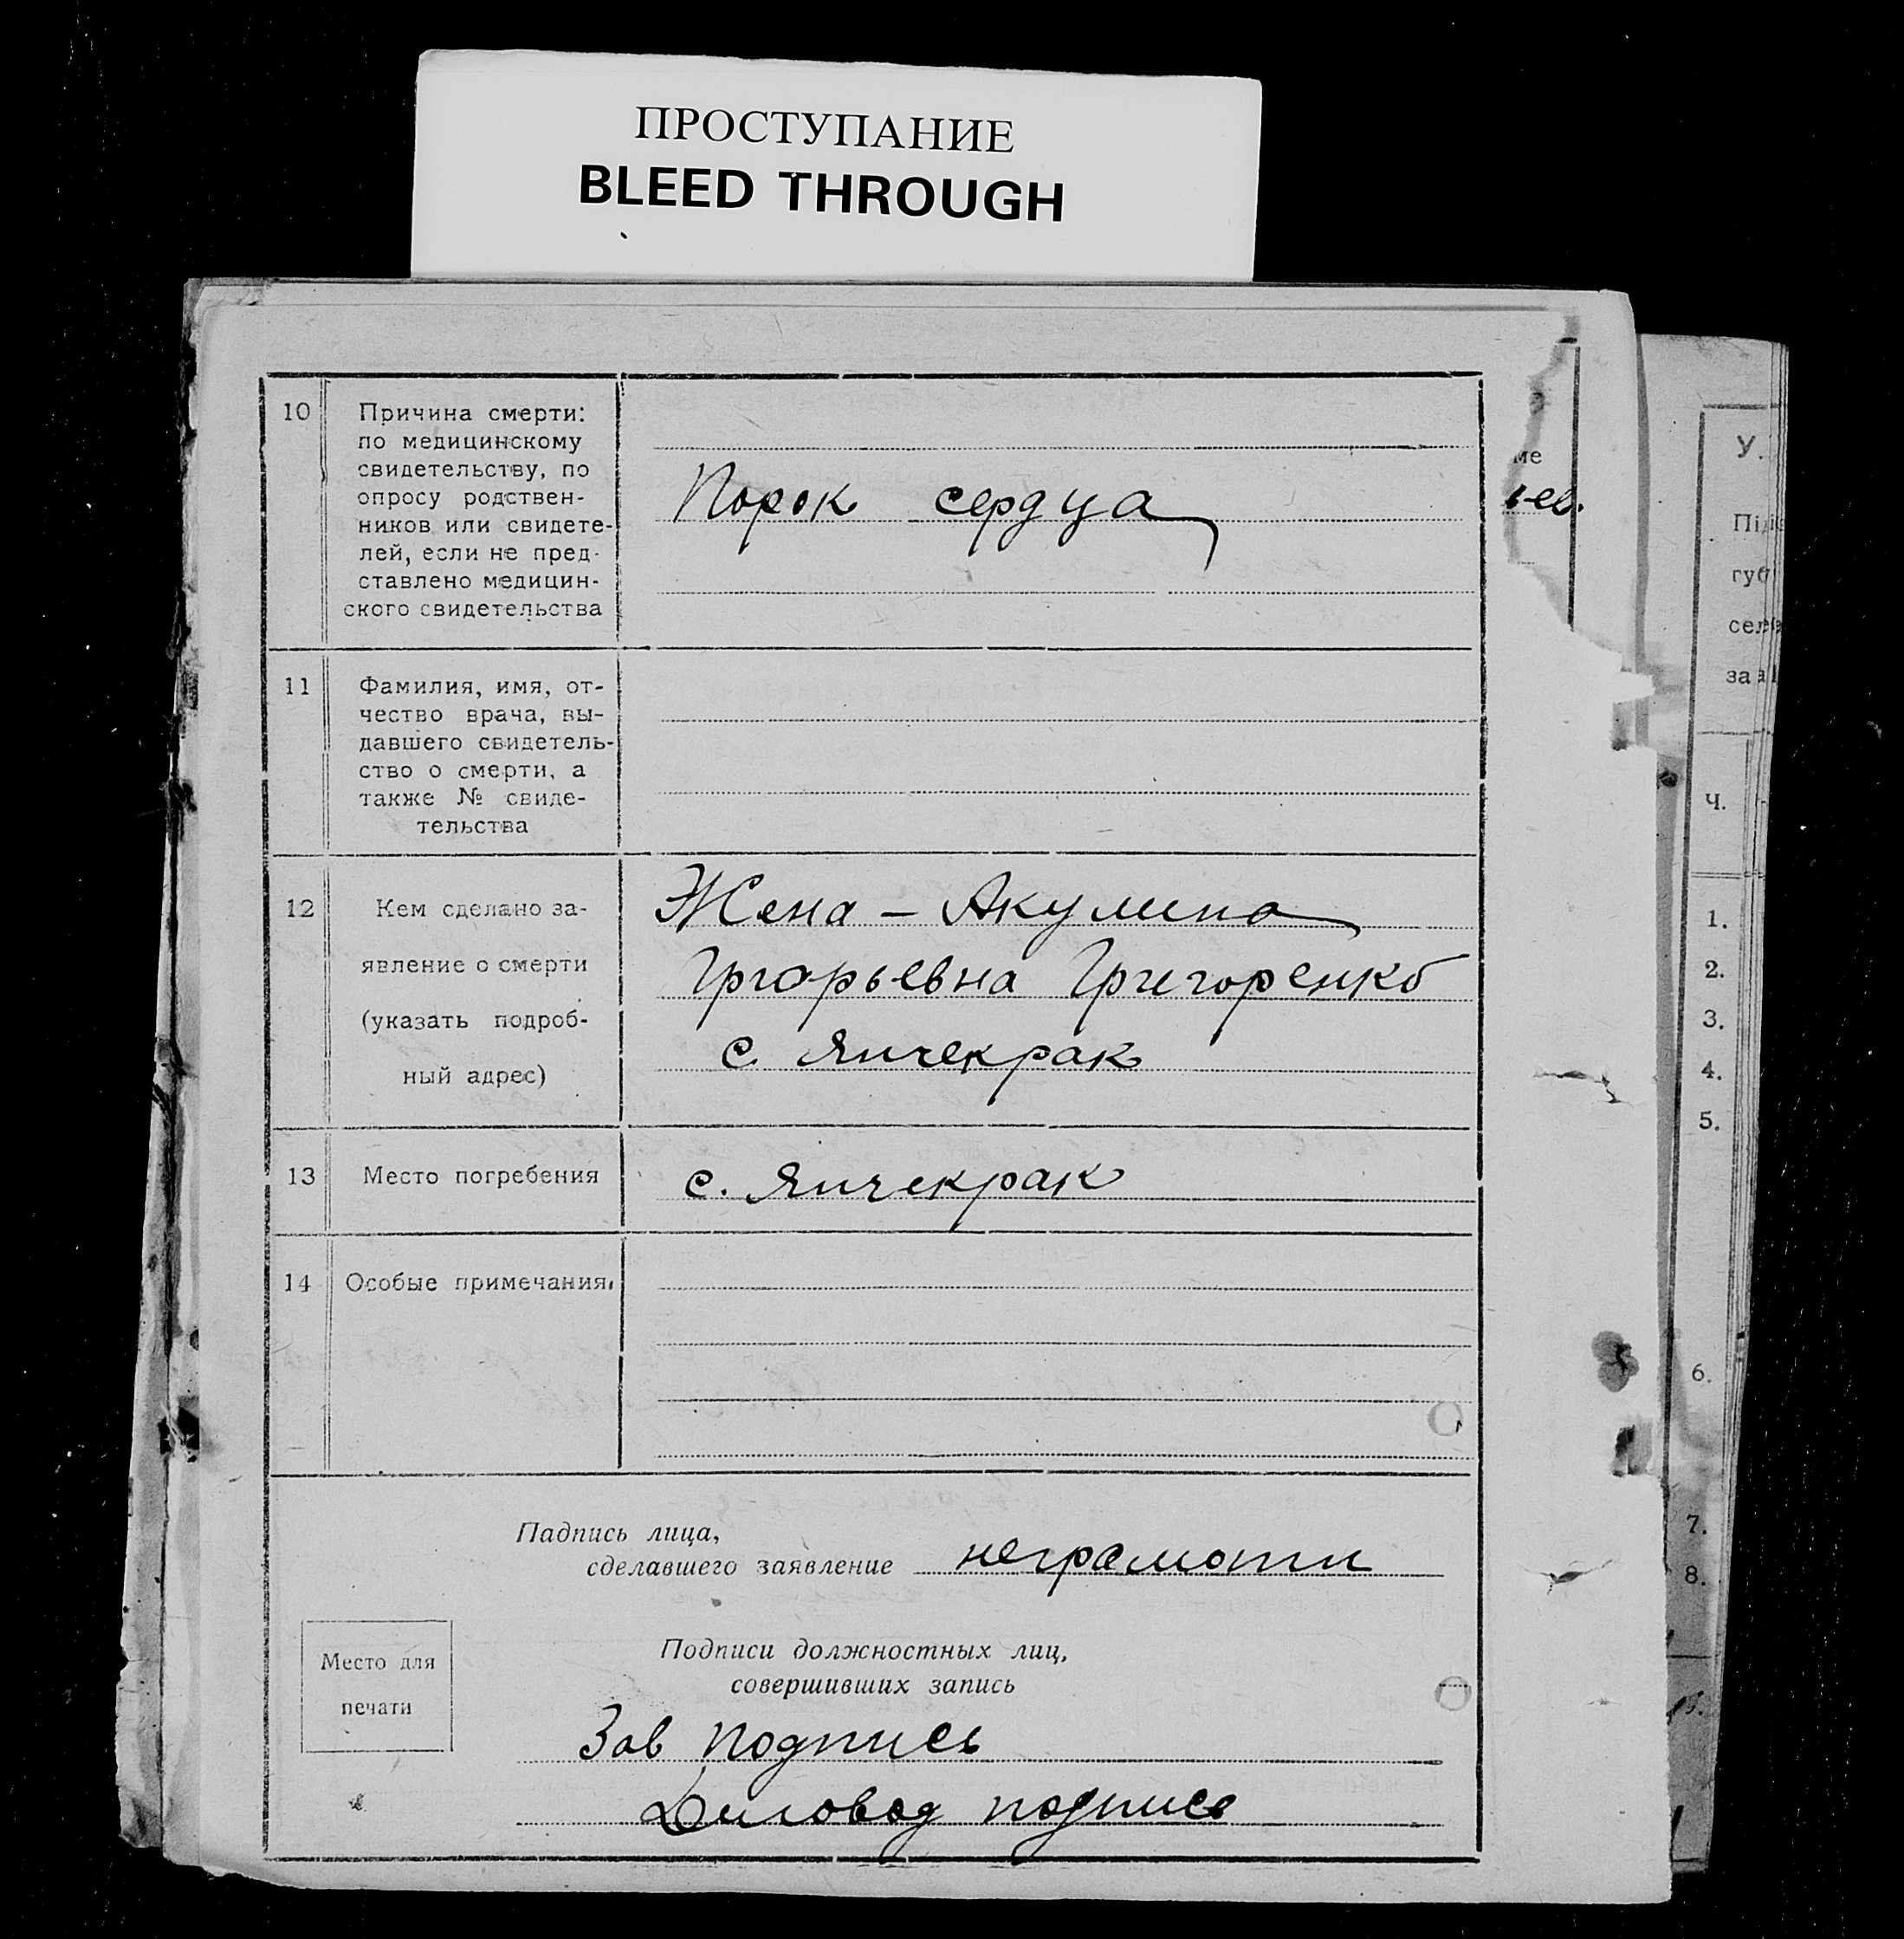 ПРОСТУПАНИЕ
BLEED THROUGH
10
Причина смерти:
по медицинскому
свидетельству, по
опросу родствен-
ников или свидете-
лей, если не пред-
ставлено медицин-
ского свидетельства
Порок сердца
11
Фамилия, имя, от-
чество врача, вы-
давшего свидетель-
ство о смерти, а
также № свиде-
тельства
12
Кем сделано за-
явление о смерти
(указать подроб-
ный адрес)
Жена – Акулина
Григорьевна Григоренко
с. Янчекрак
13
Место погребения
с. Янчекрак
14
Особые примечания
Падпись лица,
сделавшего заявление неграмотн
Место для
печати
Подписи должностных лиц,
совершивших запись
Зав подпись
Диловод подпись
ме
ев.
У.
Пі
губ
сел
за
Ч.
1.
2.
3.
4.
5.
6.
7.
8.